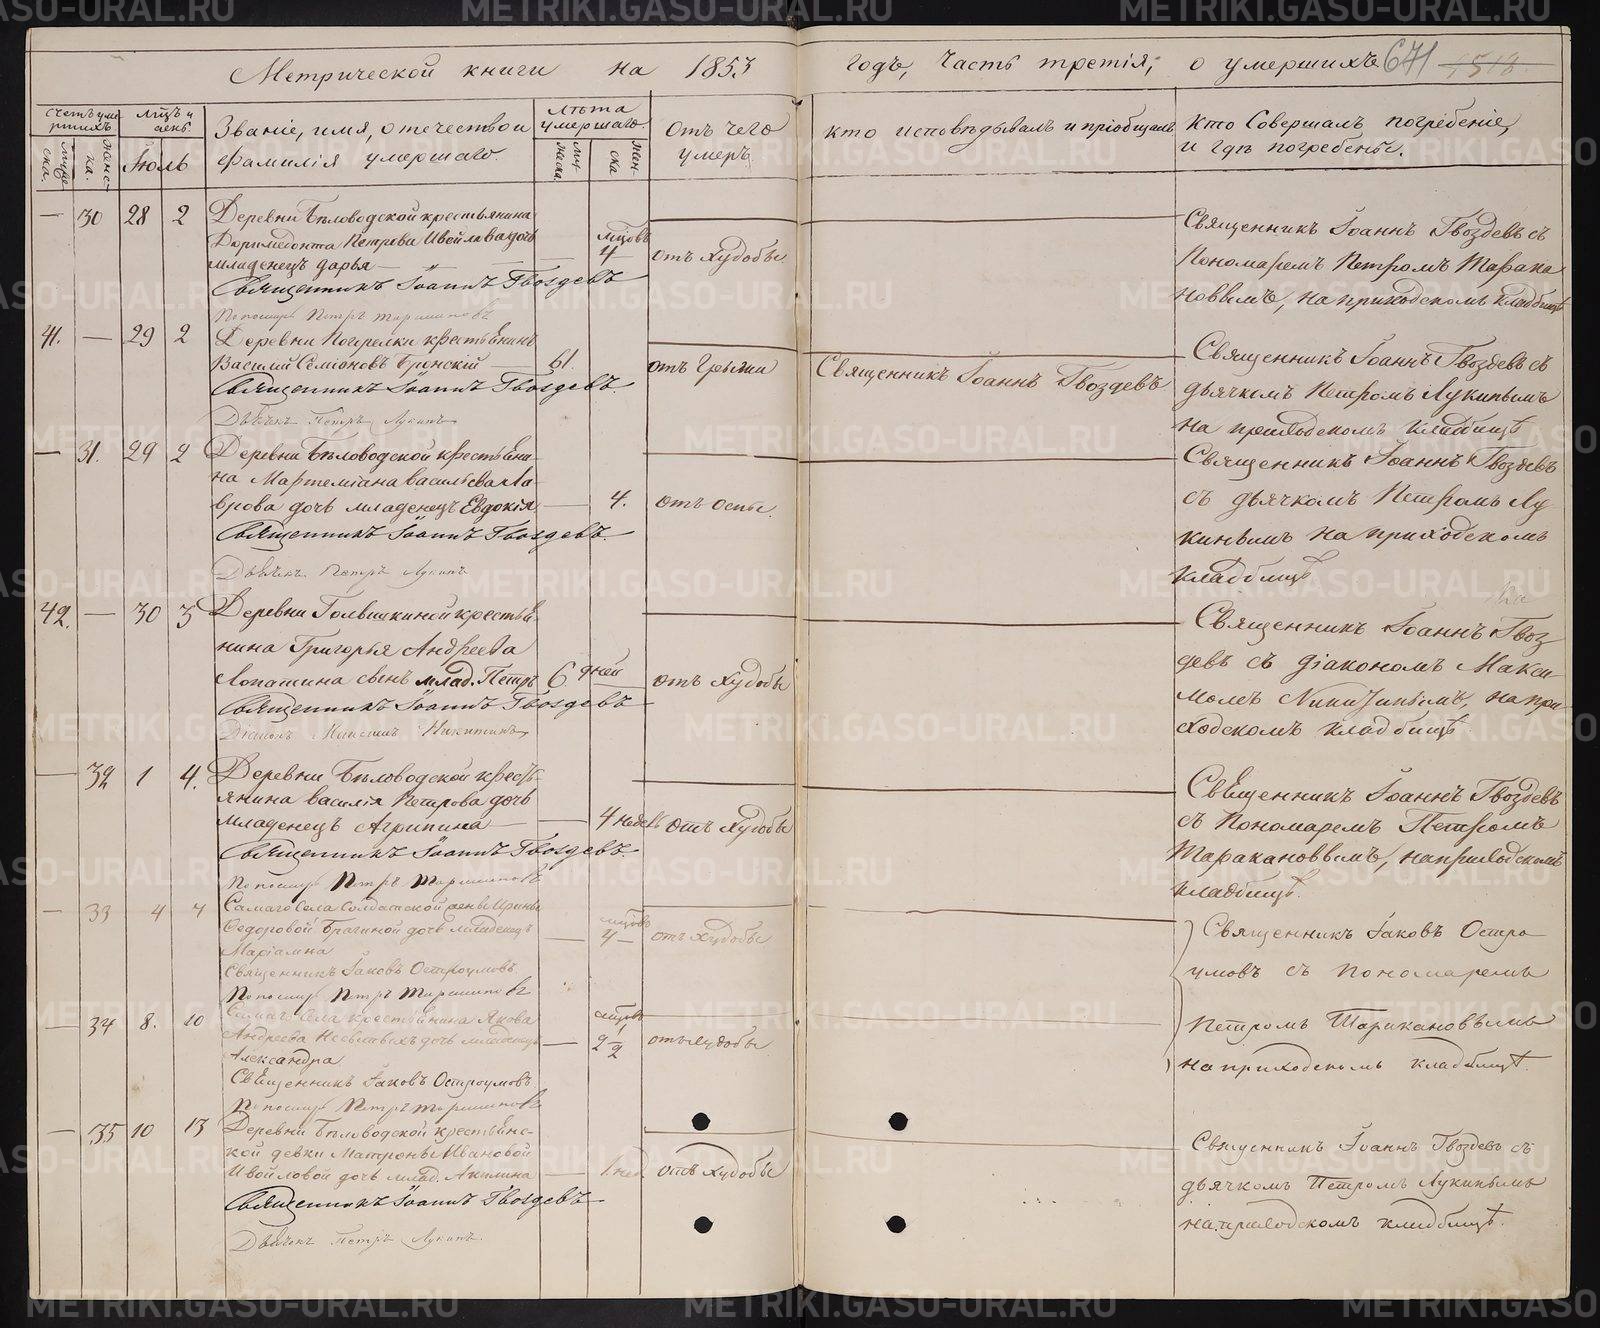 Метрической книги на 1853 годъ, часть третія, о умершихъ 671 1518
Счетъ умершихъ
Мѣсяцъ и день
Званіе, имя, отечество и фамилія умершаго.
Лѣта умершаго
Отъ чего умеръ
кто исповѣдывалъ и пріобщалъ
Кто Совершалъ погребеніе, и гдѣ погребены.
муже-ска.
женс-ка.
Июль
му-жеска.
жен-ска
— 30 28 2
Деревни Бѣловодской крестьянина
Доримедонта Петрова Ивойлова дочь
младенецъ дарья
мѣсяцовъ
4
отъ худобы
Священникъ Іоаннъ Гвоздевъ съ
Пономаремъ Петромъ Тарака
новымъ, на приходскомъ кладбищѣ
Священникъ Іоаннъ Гвоздевъ
Пономарь Петръ Таракановъ
41. — 29 2
Деревни Погорелки крестьянинъ
Василий Семіоновъ Бронскій
61.
отъ Грыжи
Священникъ Іоаннъ Гвоздевъ
Священникъ Іоаннъ Гвоздевъ съ
дьячкомъ Петромъ Лукинымъ
на приходскомъ кладбищѣ
Священникъ Іоаннъ Гвоздевъ.
Дьячекъ Петръ Лукинъ
— 31. 29 2
Деревни Бѣловодской крестьяни-
на Мартеміана васильева Ла
врова дочь младенецъ Евдокія
4.
отъ оспы.
Священникъ Іоаннъ Гвоздевъ
съ дьячкомъ Петромъ Лу
кинымъ на приходскомъ
кладбищѣ
Священникъ Іоаннъ Гвоздевъ.
Дьячекъ Петръ Лукинъ
42. — 30 3
Деревни крестья-
нина Григорья Андреева
Лопатина сынъ млад. Петръ
6 дней
отъ худобы
Священникъ Іоаннъ Гвоз
девъ съ діакономъ Макси
момъ Никитинымъ, на при
ходскомъ кладбищѣ.
Священникъ Іоаннъ Гвоздевъ
Діаконъ Максимъ Никитинъ
— 32 1 4.
Деревни Бѣловодской кресть-
янина василія Петрова дочь
младенецъ Агрипина
4 недѣль
отъ худобы
Священникъ Іоаннъ Гвоздевъ
съ Пономаремъ Петромъ
Таракановымъ, на приходскомъ
кладбищѣ.
Священникъ Іоаннъ Гвоздевъ.
Пономарь Петръ Таракановъ
— 33 4 7
Самаго Села Солдатской жены Ирины
Федоровой Брагиной дочь младенецъ
Маріамна
мѣсяцовъ
4
отъ худобы
Священникъ Іаковъ Остроумовъ.
Пономарь Петръ Таракановъ
Священникъ Іаковъ Остро
умовъ съ пономаремъ
Петромъ Таракановымъ
на приходскомъ кладбищѣ.
— 34 8. 10
Самаго Села крестьянина Якова
Андреева дочь младенецъ
Александра
отъ худобы
Священникъ Іаковъ Остроумовъ.
Пономарь Петръ Таракановъ
— 35 10 13
Деревни Бѣловодской крестьянс-
кой девки Матроны Ивановой
Ивойловой дочь млад. Акилина
1 нед
отъ худобы
Священникъ Іоаннъ Гвоздевъ съ
дьячкомъ Петромъ Лукинымъ
на приходскомъ кладбищѣ.
Священникъ Іоаннъ Гвоздевъ
Дьячекъ Петръ Лукинъ.
METRIKI.GASO-URAL.RU